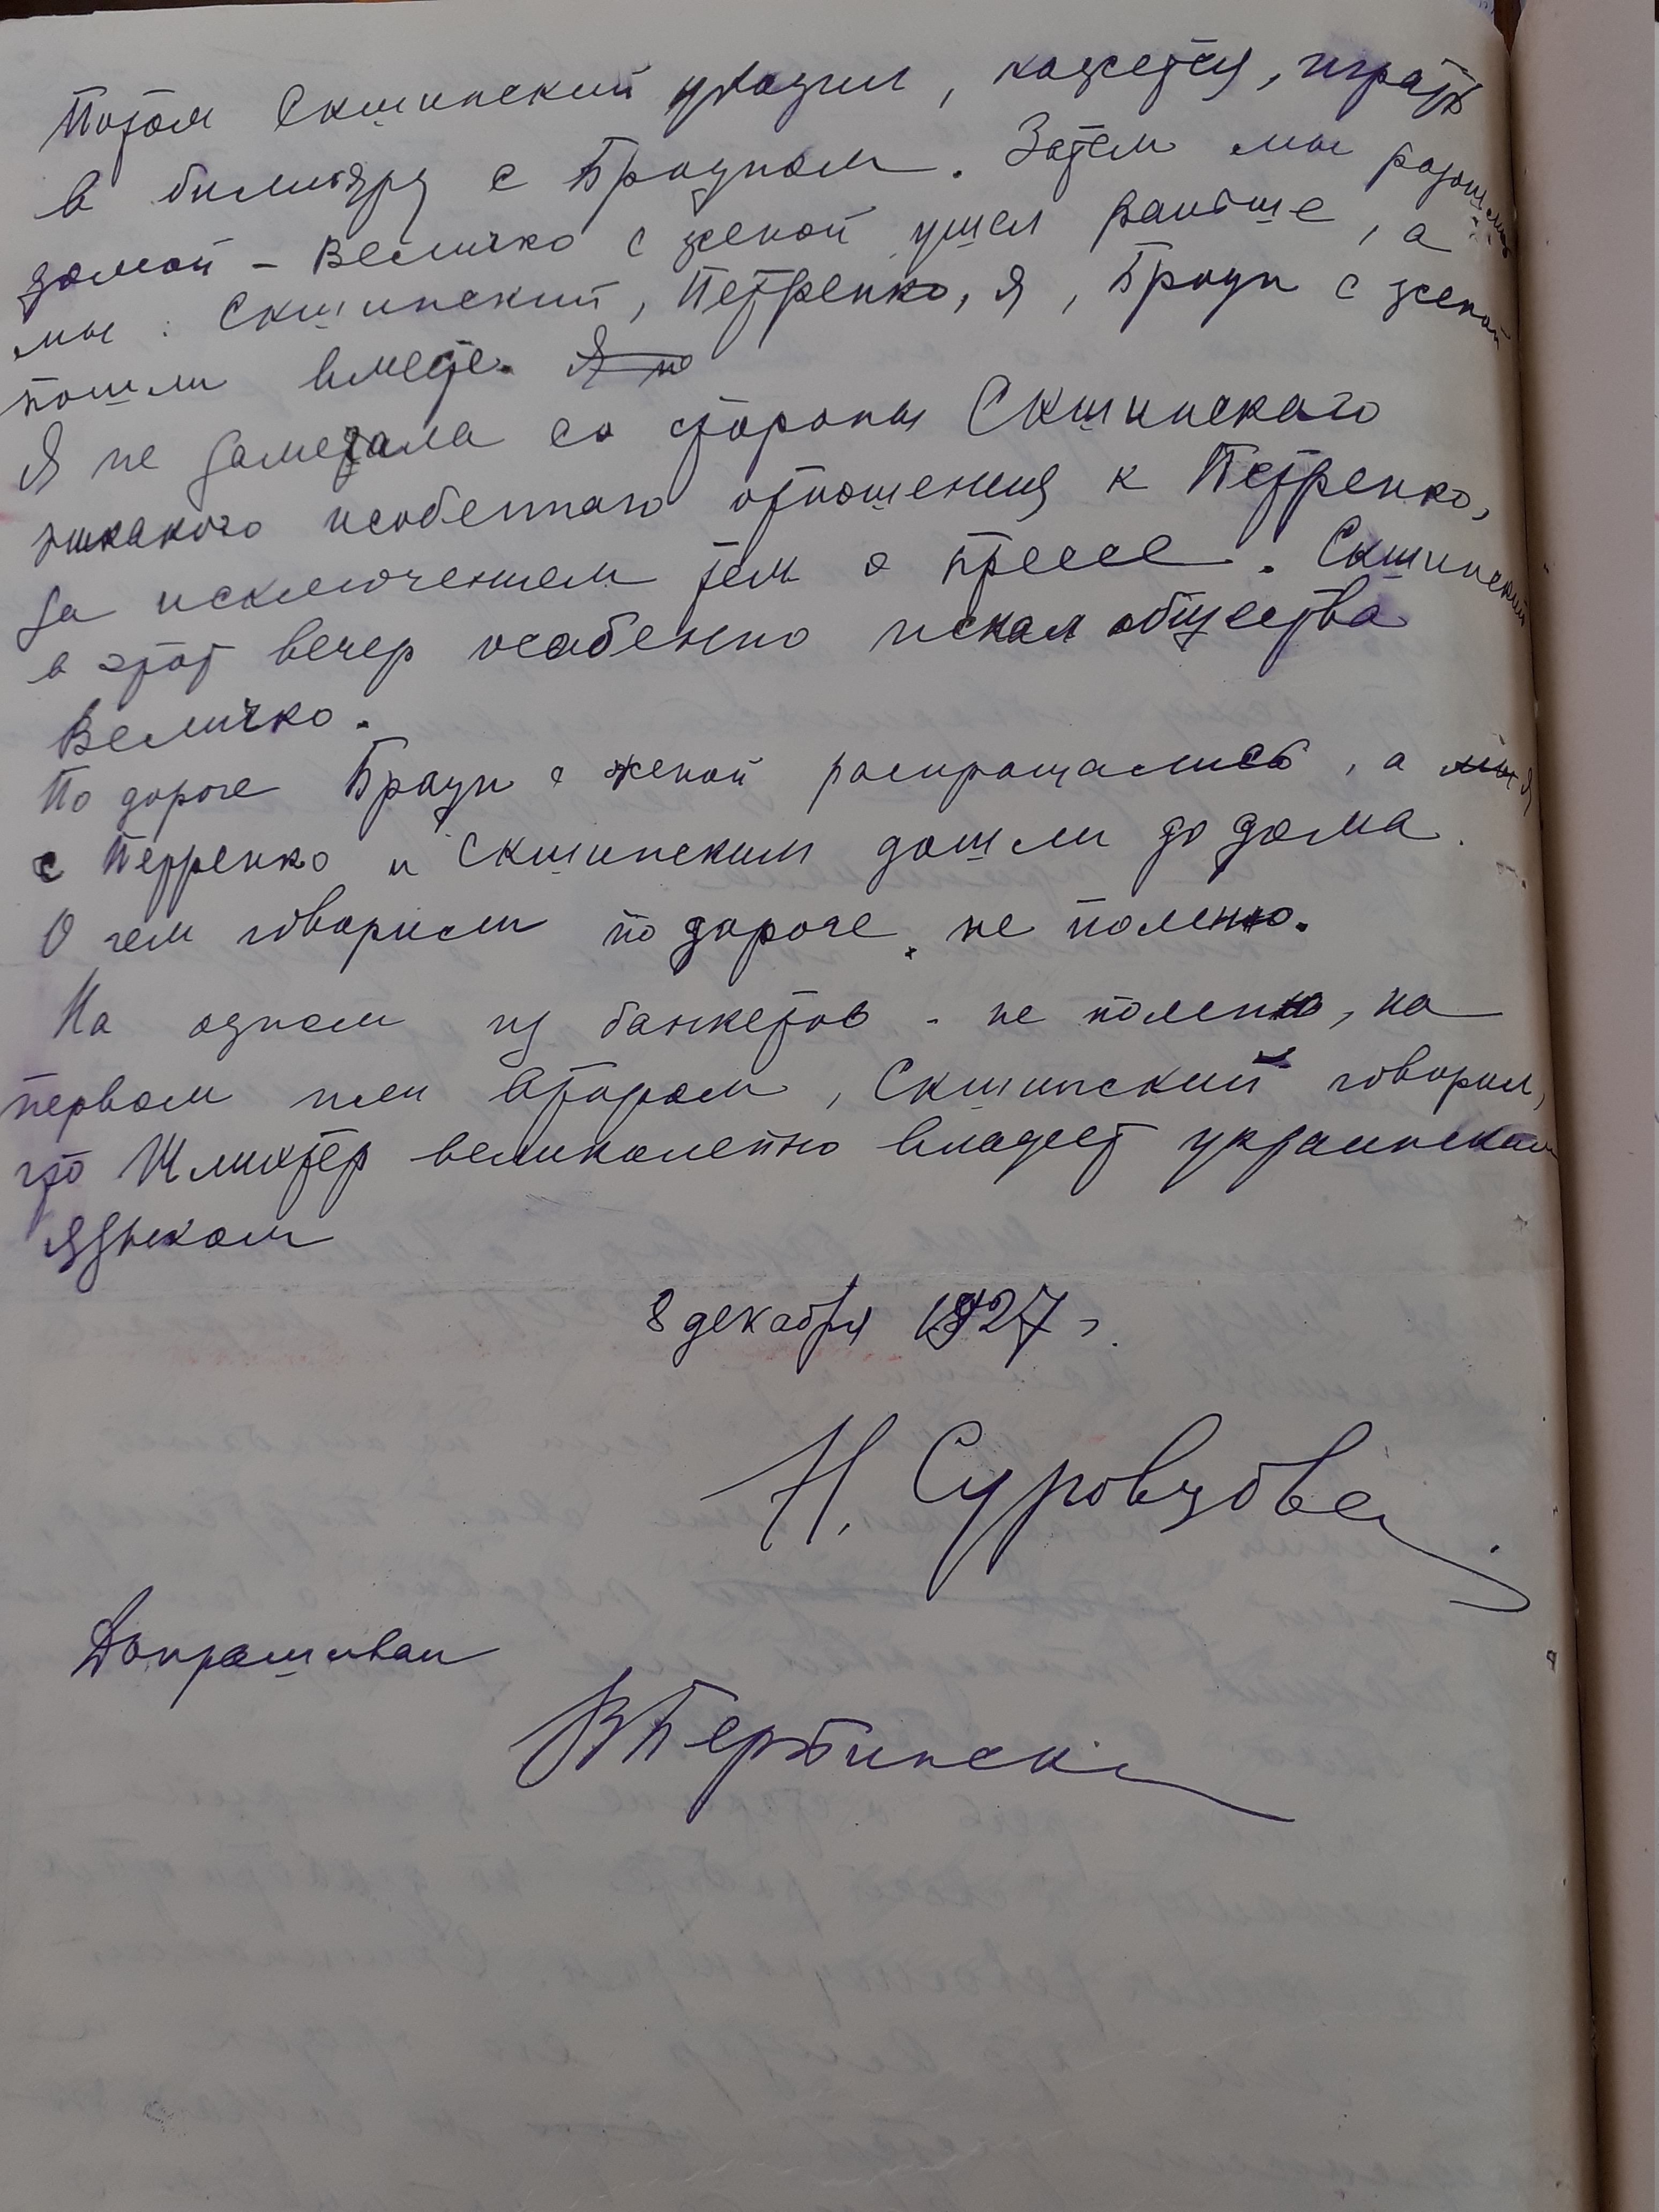 Потом Скшинский уходил, кажется, играть
в биллиярд с Брауном. Затем мы разошлись
домой - Величко с женой ушел раньше, а
мы: Скшинский, Петренко, я, Браун с женой
пошли вместе. Я по
Я не замечала со стороны Скшинского
никакого особенного отношения к Петренко,
за исключением тем о прессе. Скшинский
в этот вечер особенно искал общества
Величко.
По дороге Браун с женой распрощались, а мы я
с Петренко и Скшинским дошли до дома.
О чем говорили по дороге, не помню.
На одном из банкетов - не помню, на
первом или втором, Скшинский говорил,
что Шлихтер великолепно владеет украинским
языком
8 декабря 1927 г.
Н. Суровцова
Допрашивал